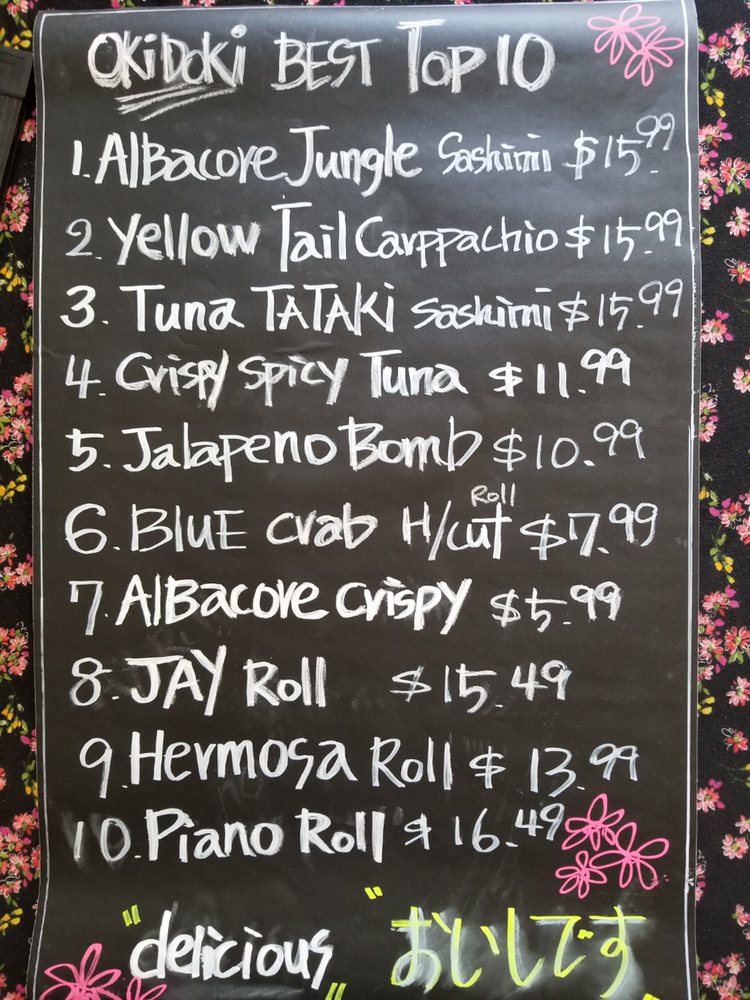 OKiDOKi BEST TOP 10
1. AlBacore Jungle Sashimi $15.99
2. Yellow Tail Carppachio $15.99
3. Tuna TATAKi Sashimi $15.99
4. Crispy Spicy Tuna $11.99
5. Jalapeno Bomb $10.99
6. BLUE Crab H/cut Roll $7.99
7. AlBacore Crispy $5.99
8. JAY Roll $15.49
9. Hermosa Roll $13.99
10. Piano Roll $16.49
"delicious" "おいしです"